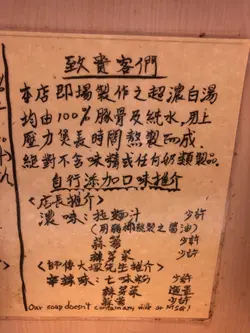 致貴客們
本店即場製作之超濃白湯
均由100%豚骨及純水，用上
壓力煲長時間熬製而成，
絕對不含味精或任何奶類製品。
自行添加口味推介
<店長推介>
濃味：拉麵汁 少許
(用豬 熬製之醬油)
蒜蓉 少許
辣芽菜 少許
<師傅大塚先生推介>
辛辣味：七味粉 少許
辣芽菜 適量
蒜蓉 少許
Our soup doesn't contain any milk or MSG!